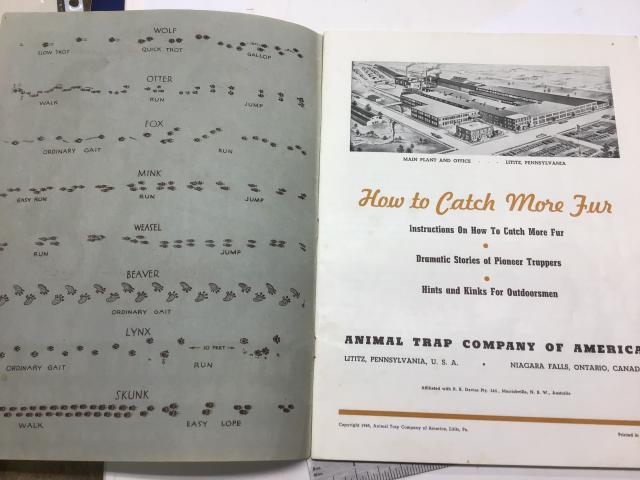 WOLF
SLOW TROT QUICK TROT GALLOP
OTTER
WALK RUN JUMP
FOX
ORDINARY GAIT RUN
MINK
EASY RUN RUN JUMP
WEASEL
RUN JUMP
BEAVER
ORDINARY GAIT
LYNX
10 FEET
ORDINARY GAIT RUN
SKUNK
WALK EASY LOPE
MAIN PLANT AND OFFICE . . . . LITITZ, PENNSYLVANIA
How to Catch More Fur
Instructions On How To Catch More Fur
Dramatic Stories of Pioneer Trappers
Hints and Kinks For Outdoorsmen
ANIMAL TRAP COMPANY OF AMERICA
LITITZ, PENNSYLVANIA, U. S. A. • NIAGARA FALLS, ONTARIO, CANAD
Affiliated with Pty. Ltd., N. S. W., Australia
Copyright Animal Trap Company of America, Lititz, Pa.
Printed in